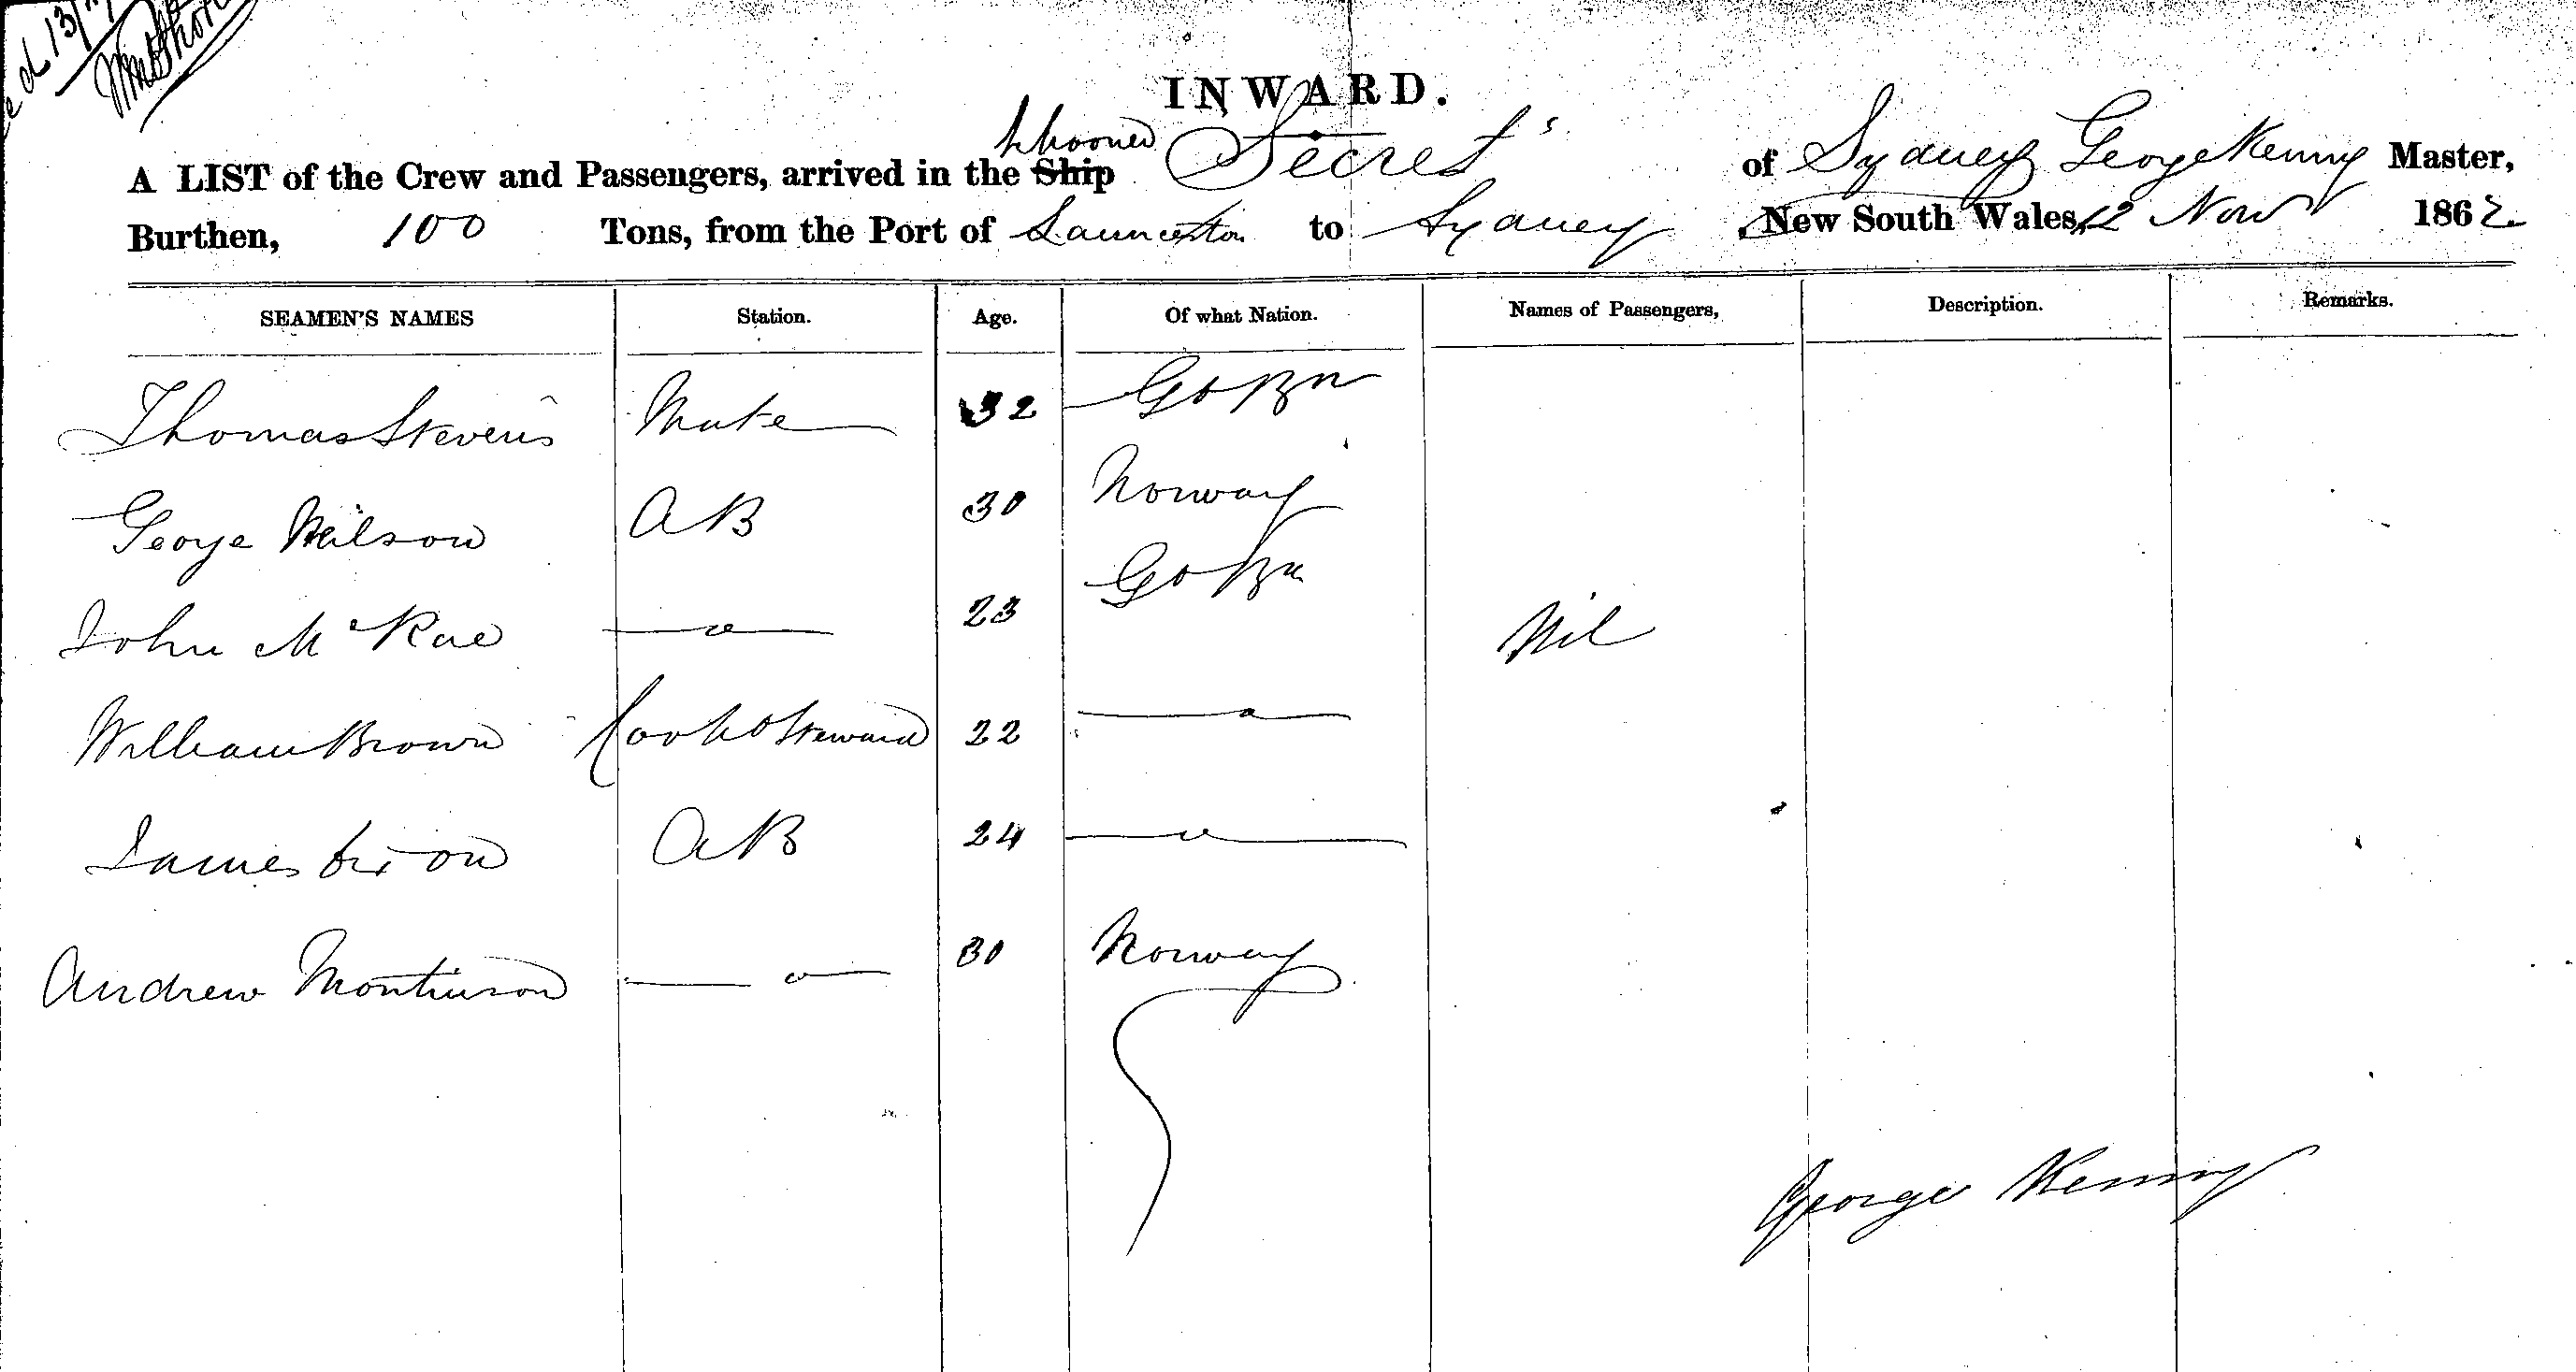 13/
INWARD.
Schooner
A LIST of the Crew and Passengers, arrived in the Ship Secret of Sydney George Kenny Master,
Burthen, 100 Tons, from the Port of Launceston to Sydney New South Wales, 12 Nov 1862
SEAMEN'S NAMES Station. Age. Of what Nation. Names of Passengers, Description. Remarks.
Thomas Stevens Mate 32 Gt Brn
George Wilson AB 30 Norway
John McRae 23 Gt Brn Nil
William Brown Cook & Steward 22
James AB 24
Andrew 30 Norway
George Kenny